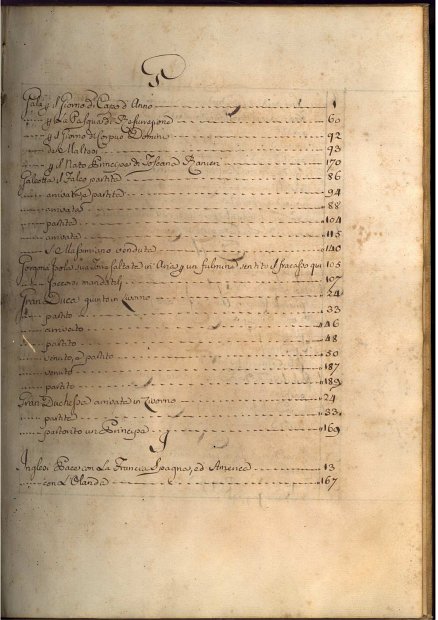 G
Gala p il Giorno di Capo d'Anno 1
p La Pasqua di Resurrezione 60
p il Giorno di Corpus Domini 92
de Maltesi 93
p il Nato Principe di Toscana 170
Galeotta partita 86
arrivata e partita 94
arrivata 88
partita 104
arrivata 115
venduta 140
Gorgona Isola sua Torre saltata in Aria p un fulmine sentito il fracasso qui 105
soccorsi mandatoli 107
Gran Duca giunto in Livorno 24
partito 33
arrivato 46
partito 48
venuto, e partito 50
venuto 187
partito 189
Gran Duchessa arrivata in Livorno 24
partita 33
partorito un Principe 169
I
Inglesi Pace con La Francia Spagna, ed America 13
con L'Olanda 167